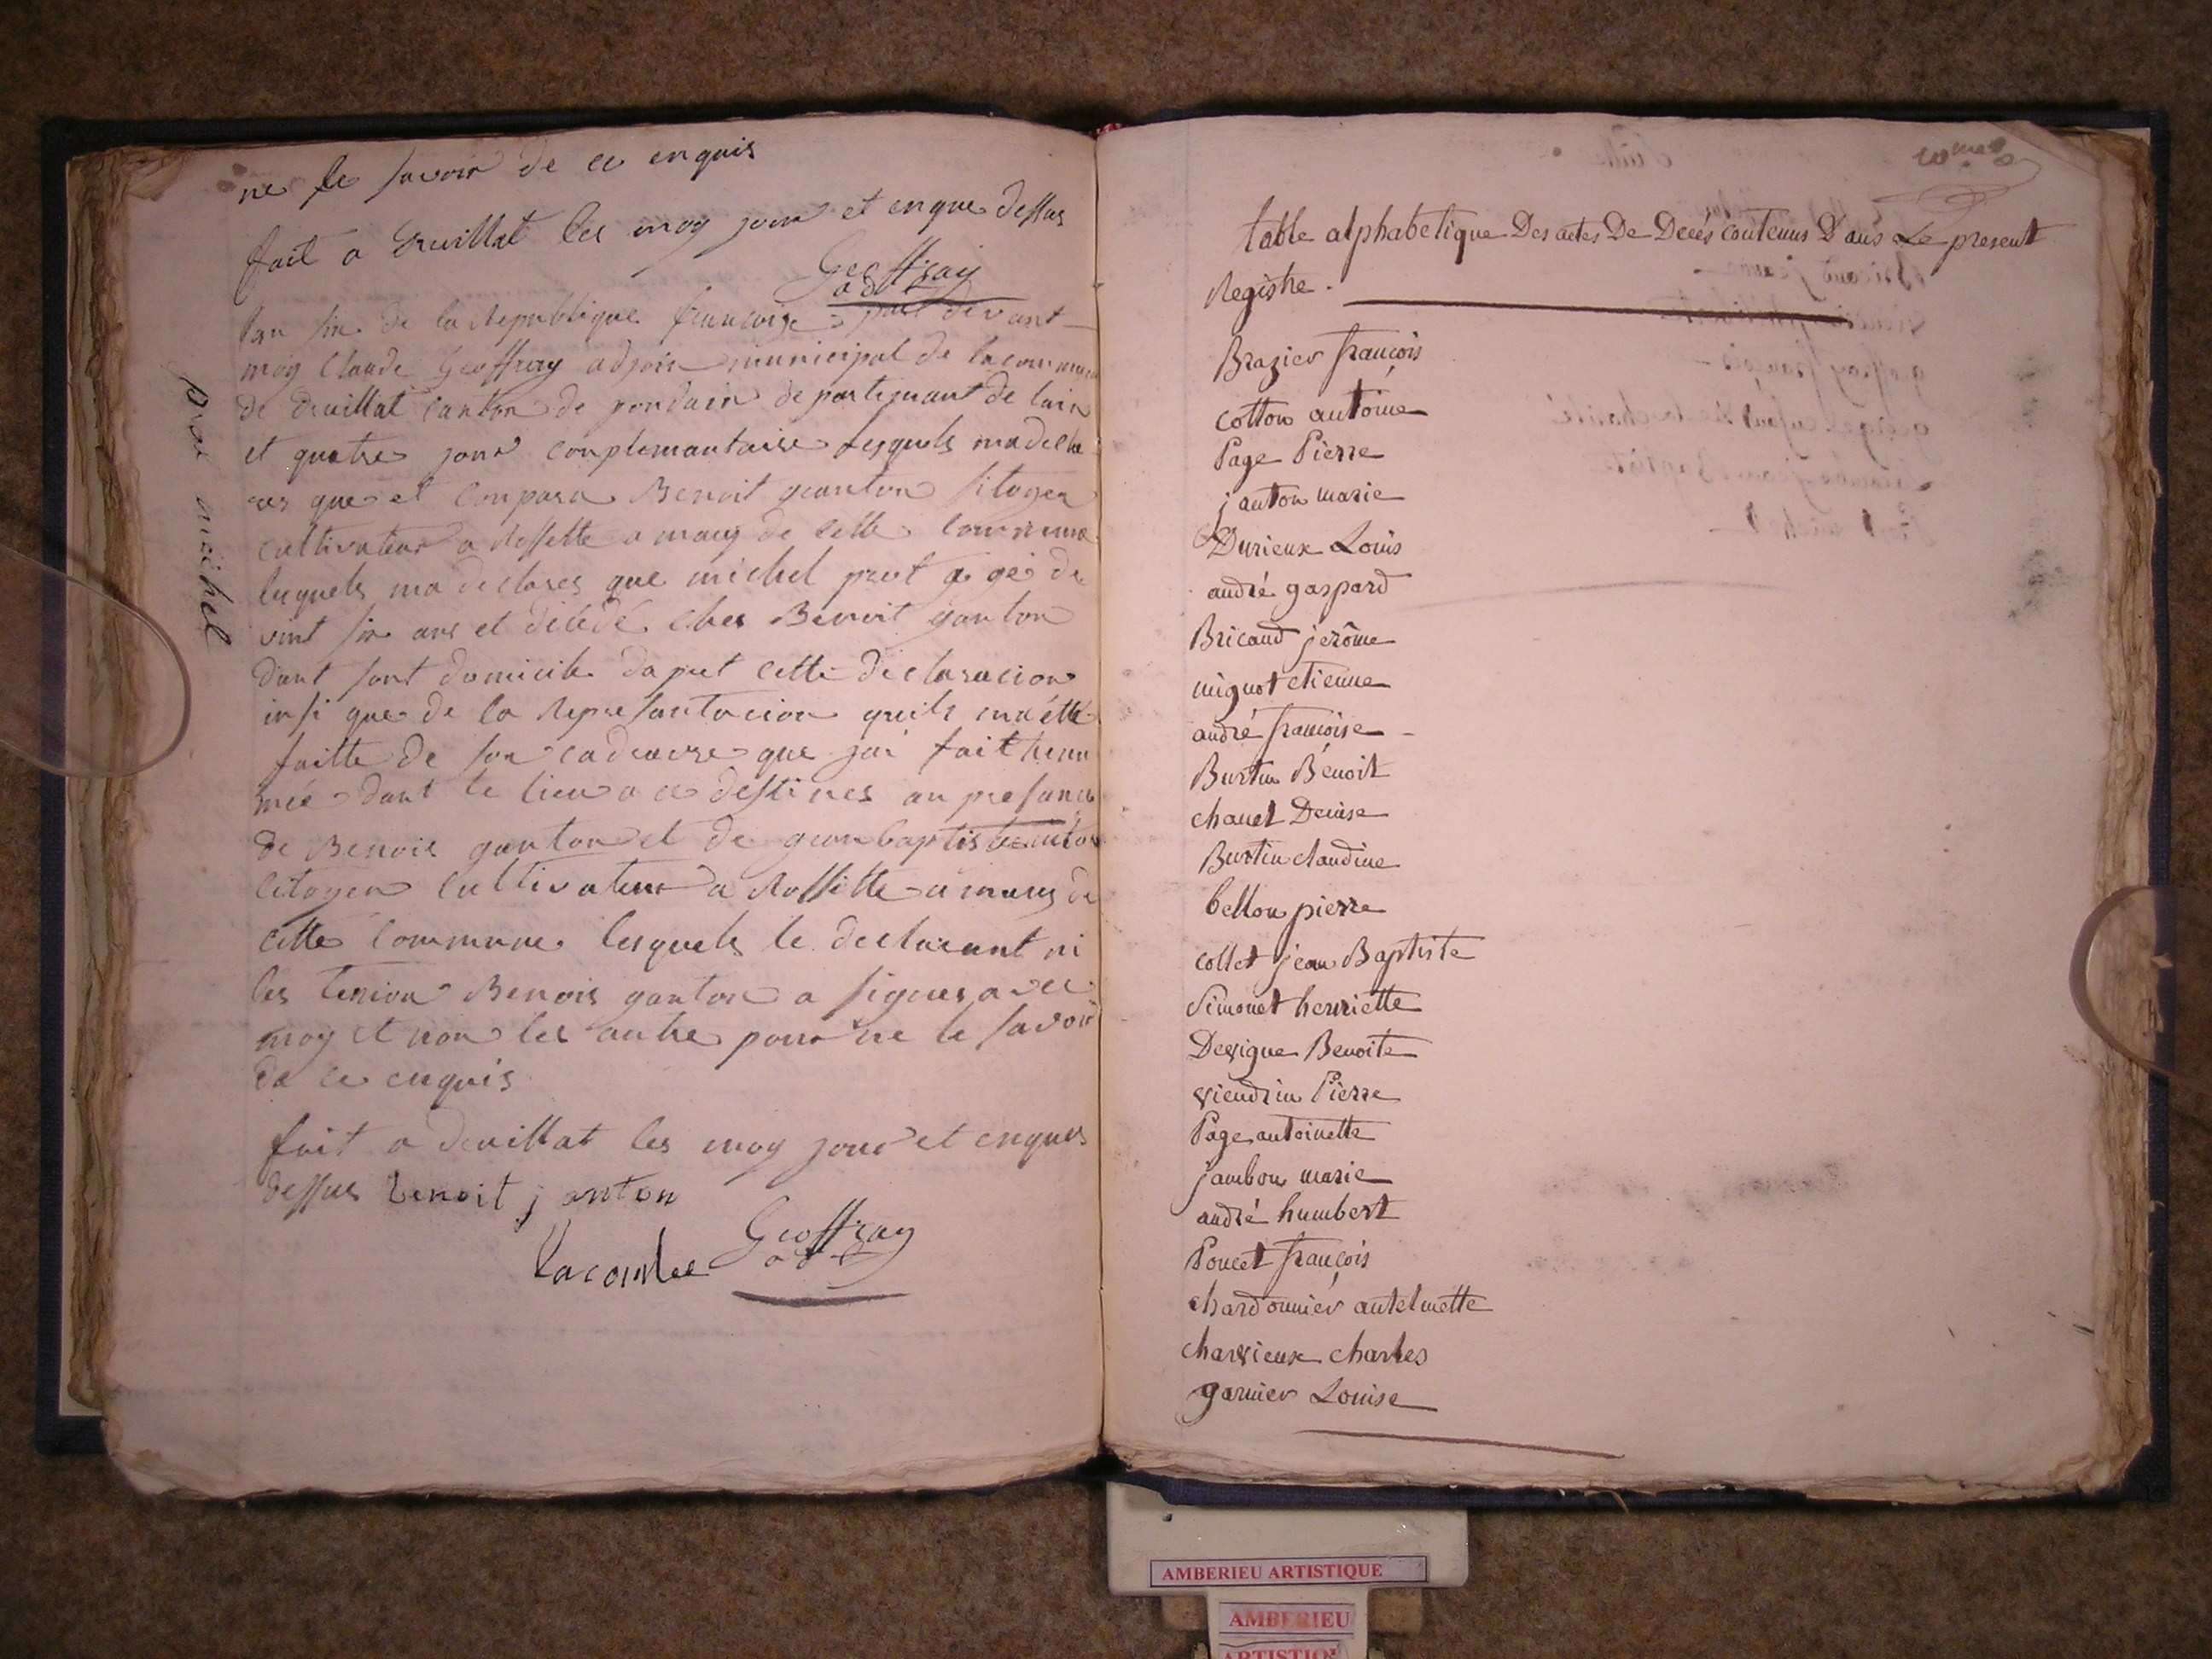 ne le savoir de ce enquis
fait a Druillat les moy jour et enque dessus
Geoffray
adj
lan six de la republique francoise par devant
moy Claude Geoffray adjoin municipal de la commune
de Druillat canton de pondain departemant de lain
et quatre jour complemantaire lesquels ma decla
res que et conpara Benoit ganton sitoyen
cultivateur a Rossette a mary de cette commune
lequels ma declares que michel prot a gé de
vint six ans et décédé ches Benoit ganton
dant sont domicile dapret cette declaracion
insi que de la represantacion quils má étté
faitte de son cadravre que jai fait henu
mée dant le lieu a ce destines an presance
de Benois ganton et de gean baptiste
citoyen cultivateur a Rossitte a marus de
cette commune lesquels le declarant ni
les temion Benois ganton a signes avec
moy et non les autre pour ne le savoir
de ce enquis
fait a druillat les moy jour et enques
dessus benoit janton
Lacombe Geoffray
adj
michel
table alphabetique Des actes De Decés contenus Dans Le present
Registre.
Brazier françois
cotton antoine
Page Pierre
janton marie
Durieux Louis
andré gaspard
Bricaud jerôme
mignot etienne
andré françoise
Burtin Benoit
chanel Denise
Burtin claudine
bellon pierre
collet jean Baptiste
Simonet henriette
Devigne Benoite
viendrin Pierre
Page antoinette
jambon marie
andré humbert
Poncet françois
chardonnier antelmette
charvieux charles
garnier Louise
AMBERIEU ARTISTIQUE
AMBERIEU
ARTISTIQUE